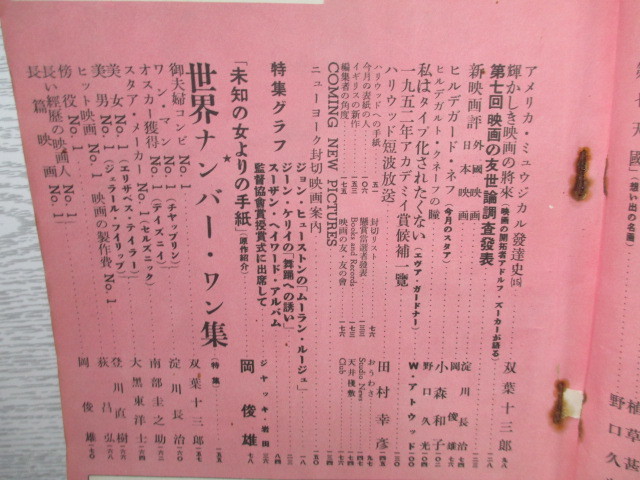 國」(想い出の名画)
植草甚
野口久
アメリカ・ミュウジカル發達史(15) 双葉十三郎
輝かしき映画の將來(映画の開拓者アドルフ・ズーカーが語る)
第七回 映画の友世論調査發表
新映画評 外國映画 淀川長治
日本映画 岡俊雄
ヒルデガード・ネフ(今月のスタア) 小森和子
ヒルデガルト・クネーフの瞳 野口久光
私はタイプ化されたくない(エヴァ・ガードナー)
一九五二年アカデミイ賞候補一覽 W・アトウッド
ハリウッド短波放送 田村幸彦
ハリウッドへの手紙 五一
今月の表紙の人 一〇六
イギリスの新作 一五三
編集者の角度 一七五
封切リスト 七六
懸賞當選者發表
Books and Records
映画の友・友の會 一七六
おうわさ 九七
Studio News
天井棧敷
Club
COMING NEW PICTURES
ニューヨーク封切映画案内 一五〇
特集グラフ
ジョン・ヒューストンの「ムーラン・ルージュ」 一八
ジーン・ケリイの「舞踊への誘い」
スーザン・ヘイワード・アルバム
監督協會賞授賞式に出席して ジャッキー・岩田
「未知の女よりの手紙」(原作紹介) 岡俊雄
世界ナンバー・ワン集(特集) 一五五
御夫婦コンビ No.1 双葉十三郎 一五七
ワン・マン No.1(チャップリン) 淀川長治 一六〇
オスカー獲得 No.1(デイズニイ) 南部圭之助
スタア・メーカー No.1(セルズニック) 大黒東洋士 一六四
美女 No.1(エリザベス・テイラー) 登川直樹
美男 No.1(ジェラール・フイリップ) 荻昌弘 一六八
ヒット映画 No.1 映画の製作費 No.1 岡俊雄 一七〇
傍役 No.1
長い經歴の映画人 No.1
長篇映画 No.1